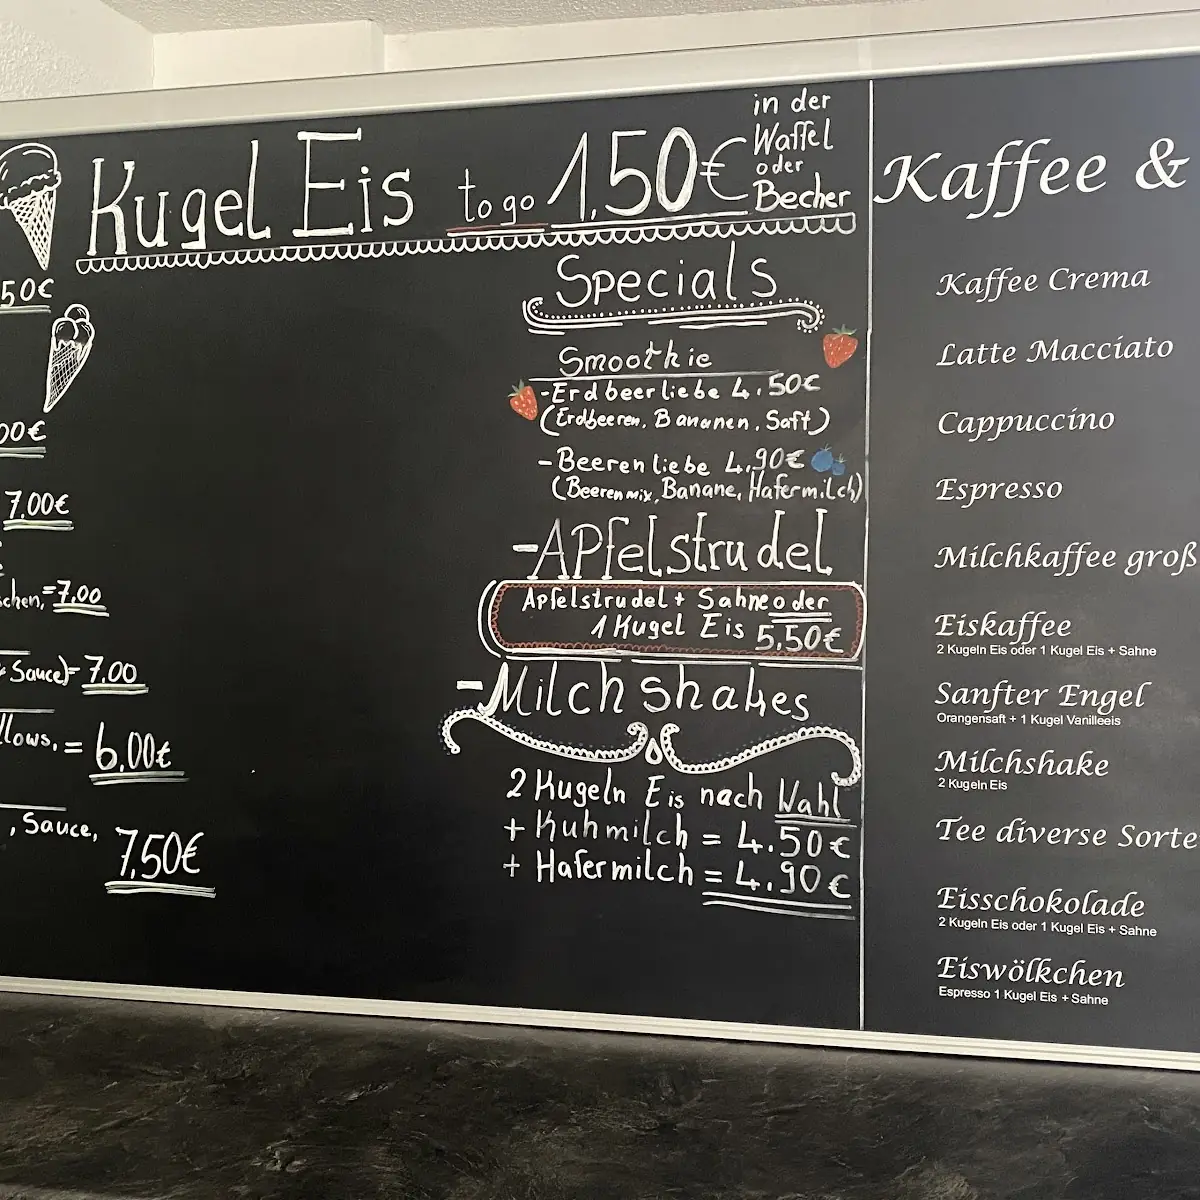 50€
00€
7.00€
schen,=7.00
+ Sauce)= 7.00
llows. = 6,00€
, Sauce, 7,50€
Kugel Eis to go 1,50€
in der
Waffel
oder
Becher
Specials
Smoothie
-Erdbeerliebe 4.50€
(Erdbeeren, Bananen, Saft)
-Beerenliebe 4,90€
(Beerenmix, Banane, Hafermilch)
-Apfelstrudel
Apfelstrudel + Sahne oder
1 Kugel Eis 5,50€
-Milchshakes
2 Kugeln Eis nach Wahl
+ Kuhmilch = 4.50€
+ Hafermilch = 4.90€
Kaffee &
Kaffee Crema
Latte Macciato
Cappuccino
Espresso
Milchkaffee groß
Eiskaffee
2 Kugeln Eis oder 1 Kugel Eis + Sahne
Sanfter Engel
Orangensaft + 1 Kugel Vanilleeis
Milchshake
2 Kugeln Eis
Tee diverse Sorte
Eisschokolade
2 Kugeln Eis oder 1 Kugel Eis + Sahne
Eiswölkchen
Espresso 1 Kugel Eis + Sahne